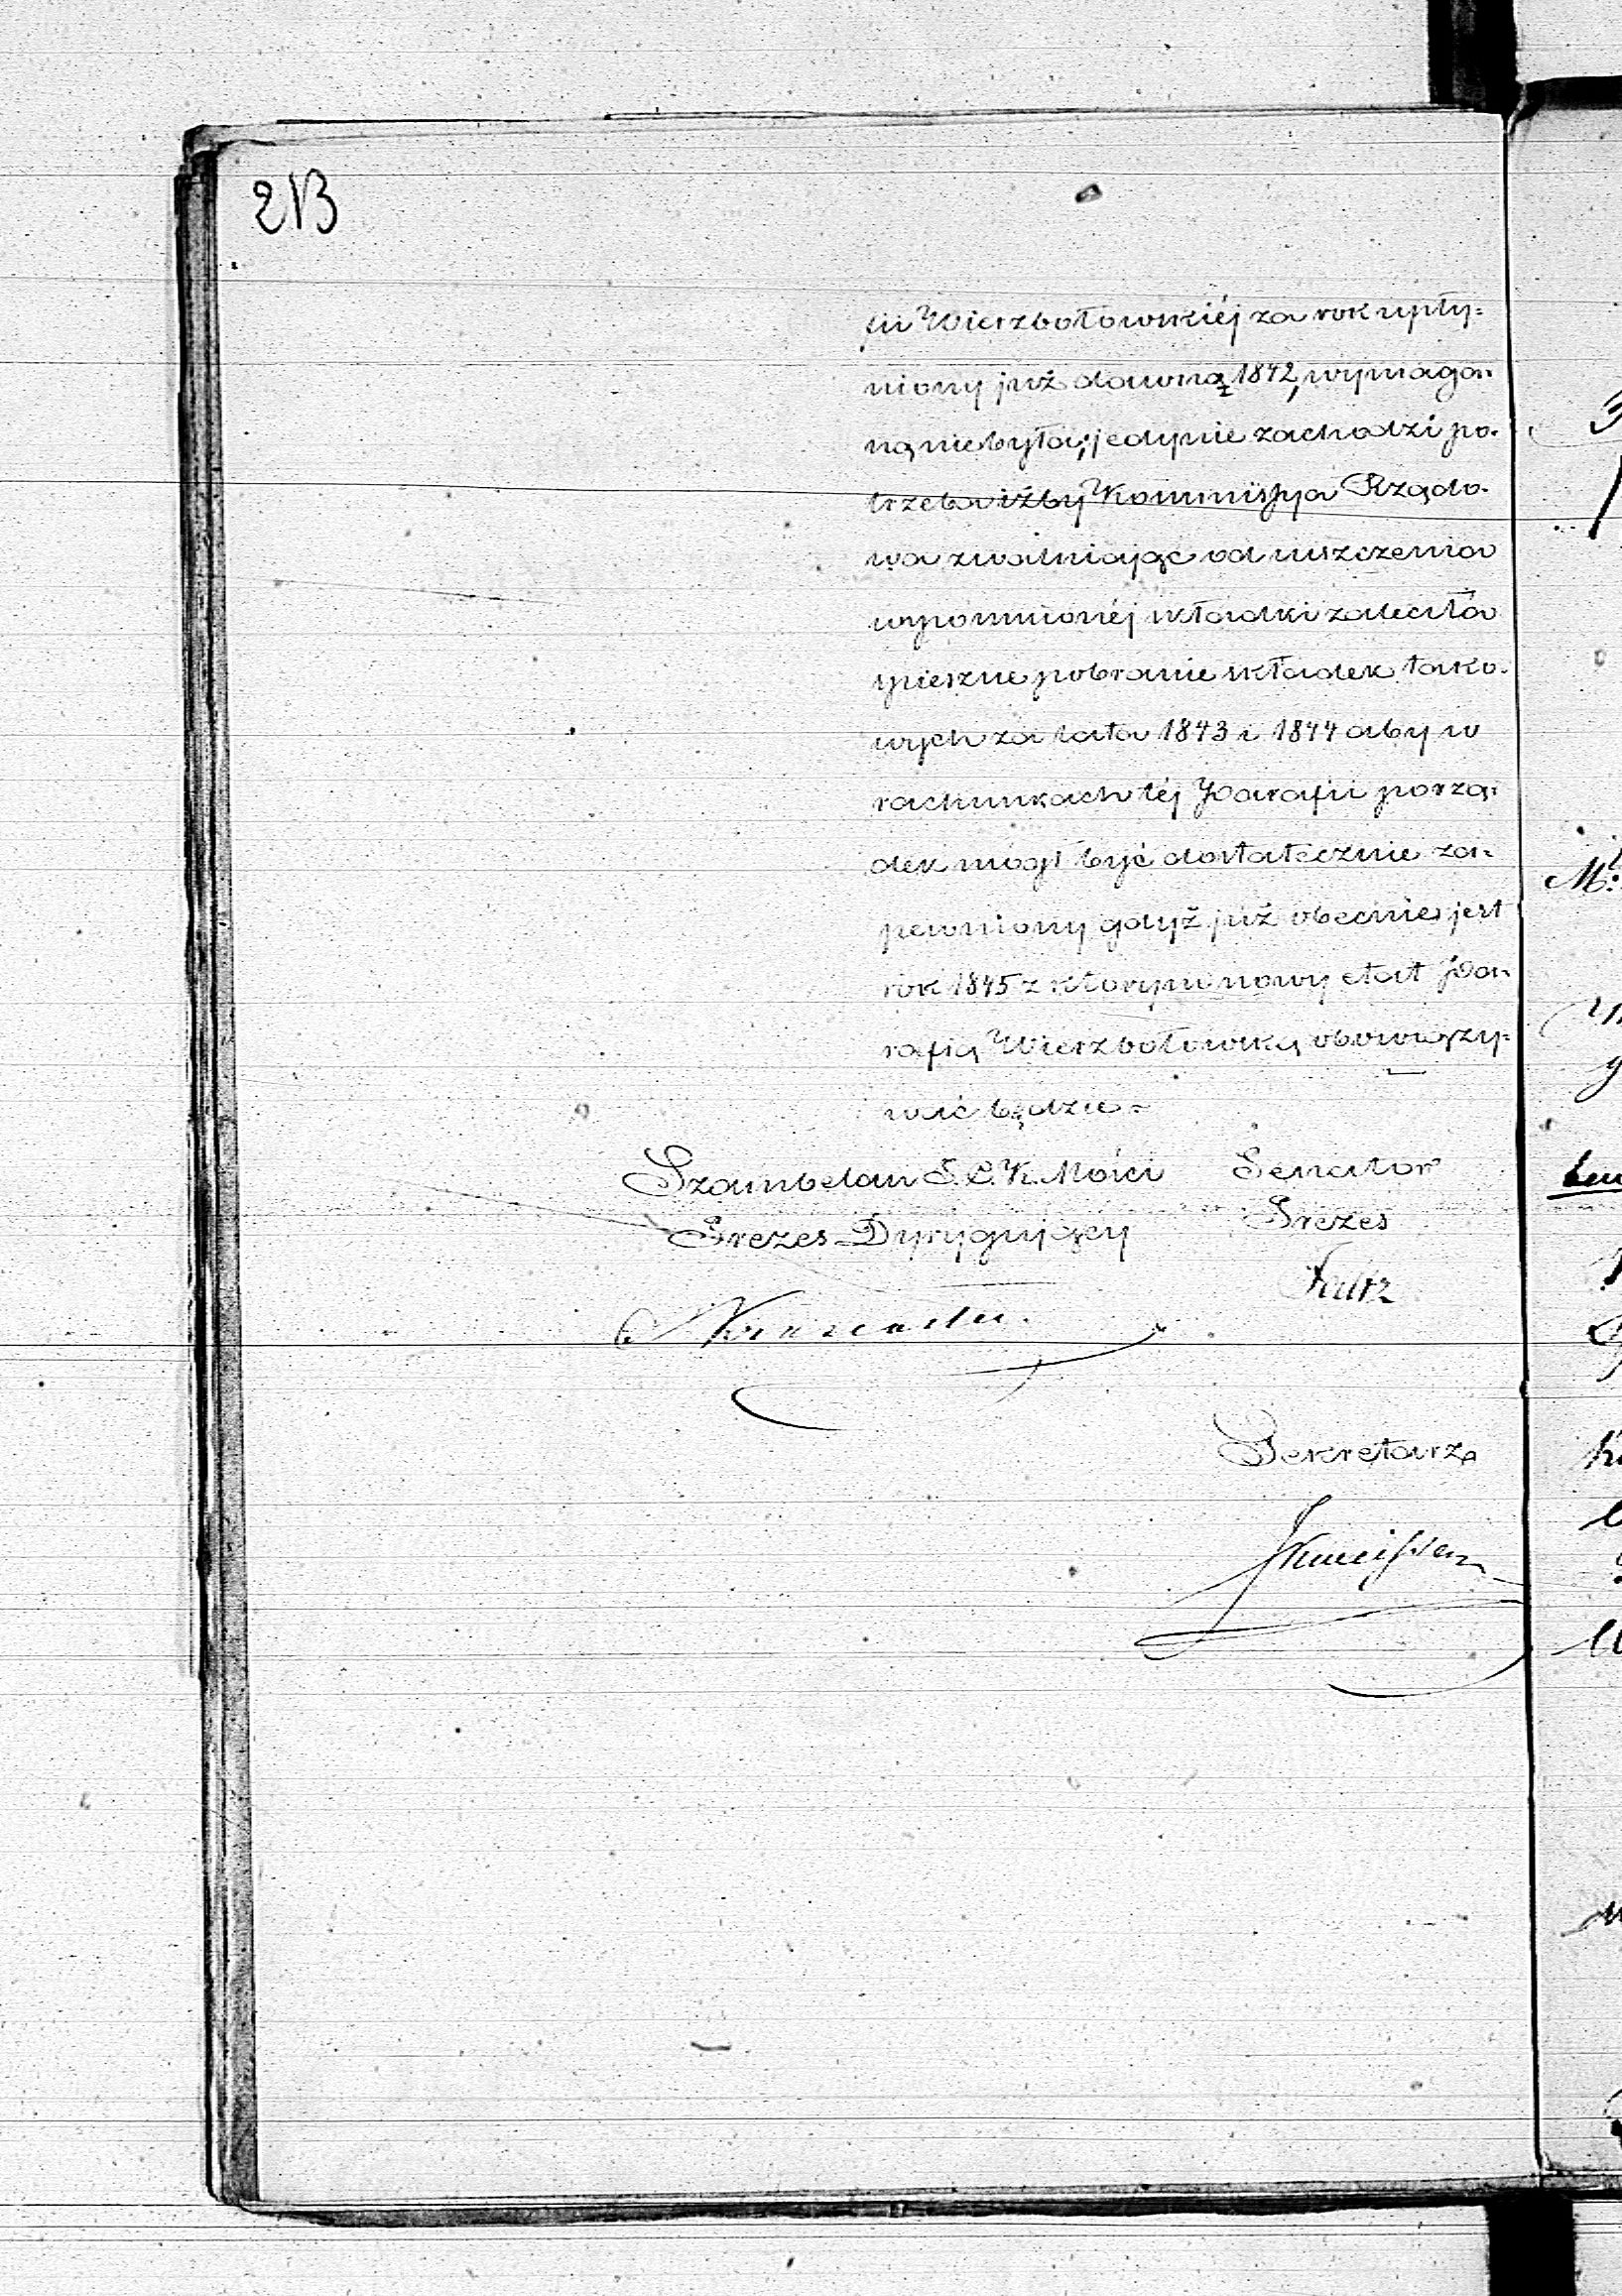 213
fii Wierzbołowskiéj za rok upły-
niony już dawno 1842, wymaga-
ną nie była; jedynie zachodzi po-
trzeba iżby Kommissya Rządo-
wa zwalniając od uiszczenia
wspomnionéj składki zaleciła
spieszne pobranie składek tako-
wych za lata 1843 i 1844 aby w
rachunkach téj Parafii porzą-
dek mógł być dostatecznie za-
pewniony gdyż już obecnie jest
rok 1845 z którym nowy etat Pa-
rafią Wierzbołowską obowiązy-
wać będzie.
Szambelan J. C. K. Mości Senator
Prezes Dyrygujący Prezes
Sekretarz